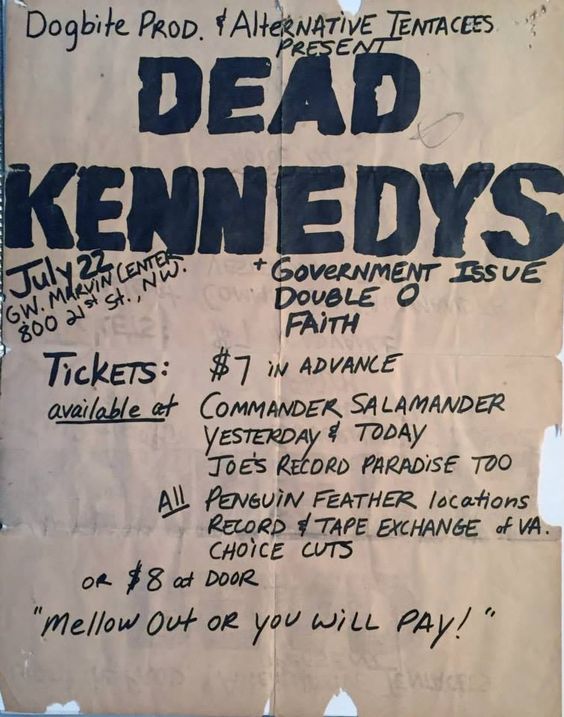 Dogbite PROD. & AlteRNATIVE TENTACEES
PRESENT
DEAD
KENNEDYS
July 22
G.W. MARVIN CENTER
800 21st St., N.W.
+ GOVERNMENT ISSUE
DOUBLE O
FAITH
TICKETS: $7 IN ADVANCE
available at COMMANDER SALAMANDER
YESTERDAY & TODAY
JOE'S RECORD PARADISE TOO
All PENGUIN FEATHER locations
RECORD & TAPE EXCHANGE of VA.
CHOICE CUTS
OR $8 at DOOR
"Mellow Out OR YOU WILL PAY!"